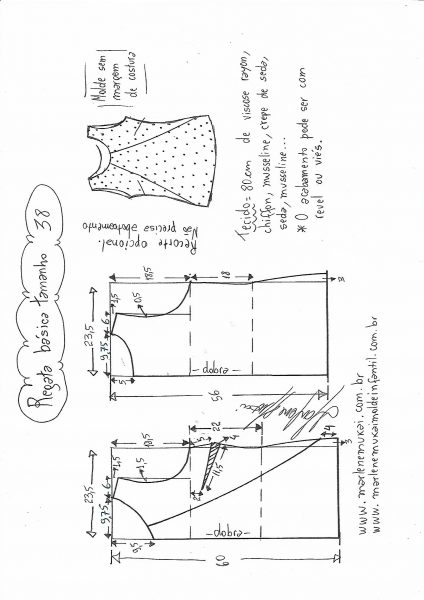 Regata básica tamanho 38
Molde sem
margem
de costura
Recorte opcional.
Não precisa abotoamento
Tecido = 80cm de viscose rayon,
chiffon, musseline, crepe de seda,
seda, musseline...
* O acabamento pode ser com
revel ou viés.
23,5
9,75
6
1,5
5
0,5
18,5
18
3
-dobra-
56
23,5
9,75
6
1,5
9,5
1,5
18,5
22
5
4
11,5
2
4
3
-dobra-
60
www.marlenemukai.com.br
www.marlenemukaimoldeinfantil.com.br